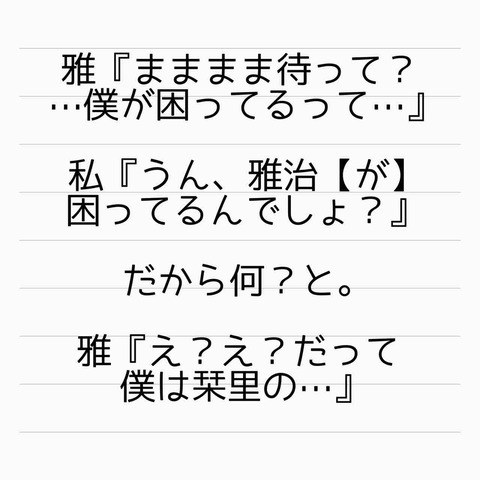 雅『まままま待って？
…僕が困ってるって…』
私『うん、雅治【が】
困ってるんでしょ？』
だから何？と。
雅『え？え？だって
僕は栞里の…』